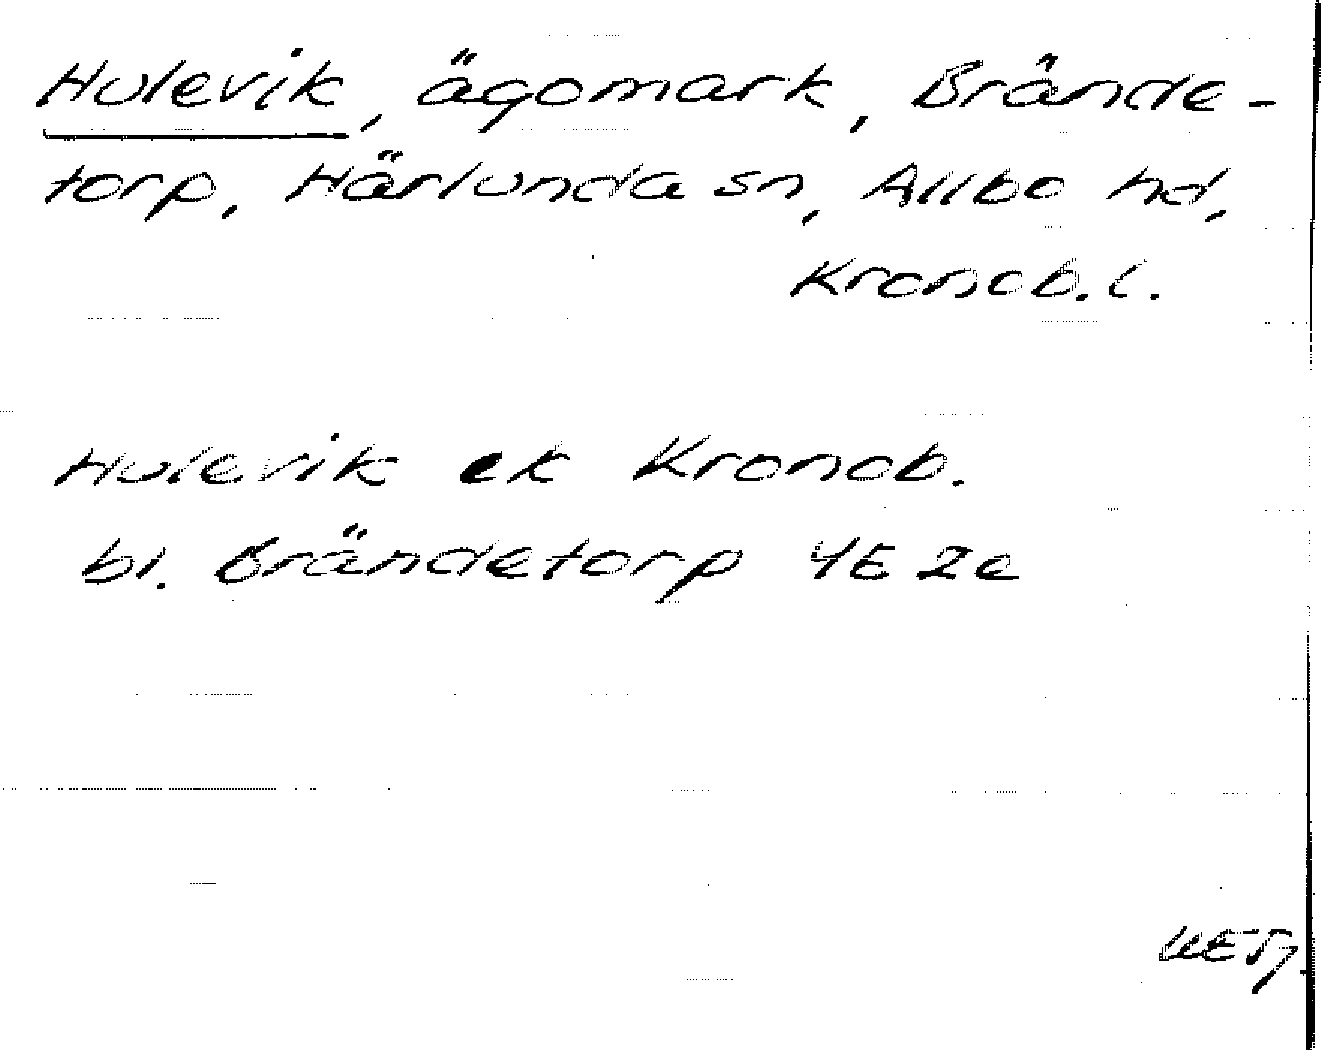 Hulevik, ägomark, Brände-
torp, Härlunda sn, Allbo hd,
Kronob. l.
Hulevik ek Kronob.
bl. Brändetorp 4E 2e